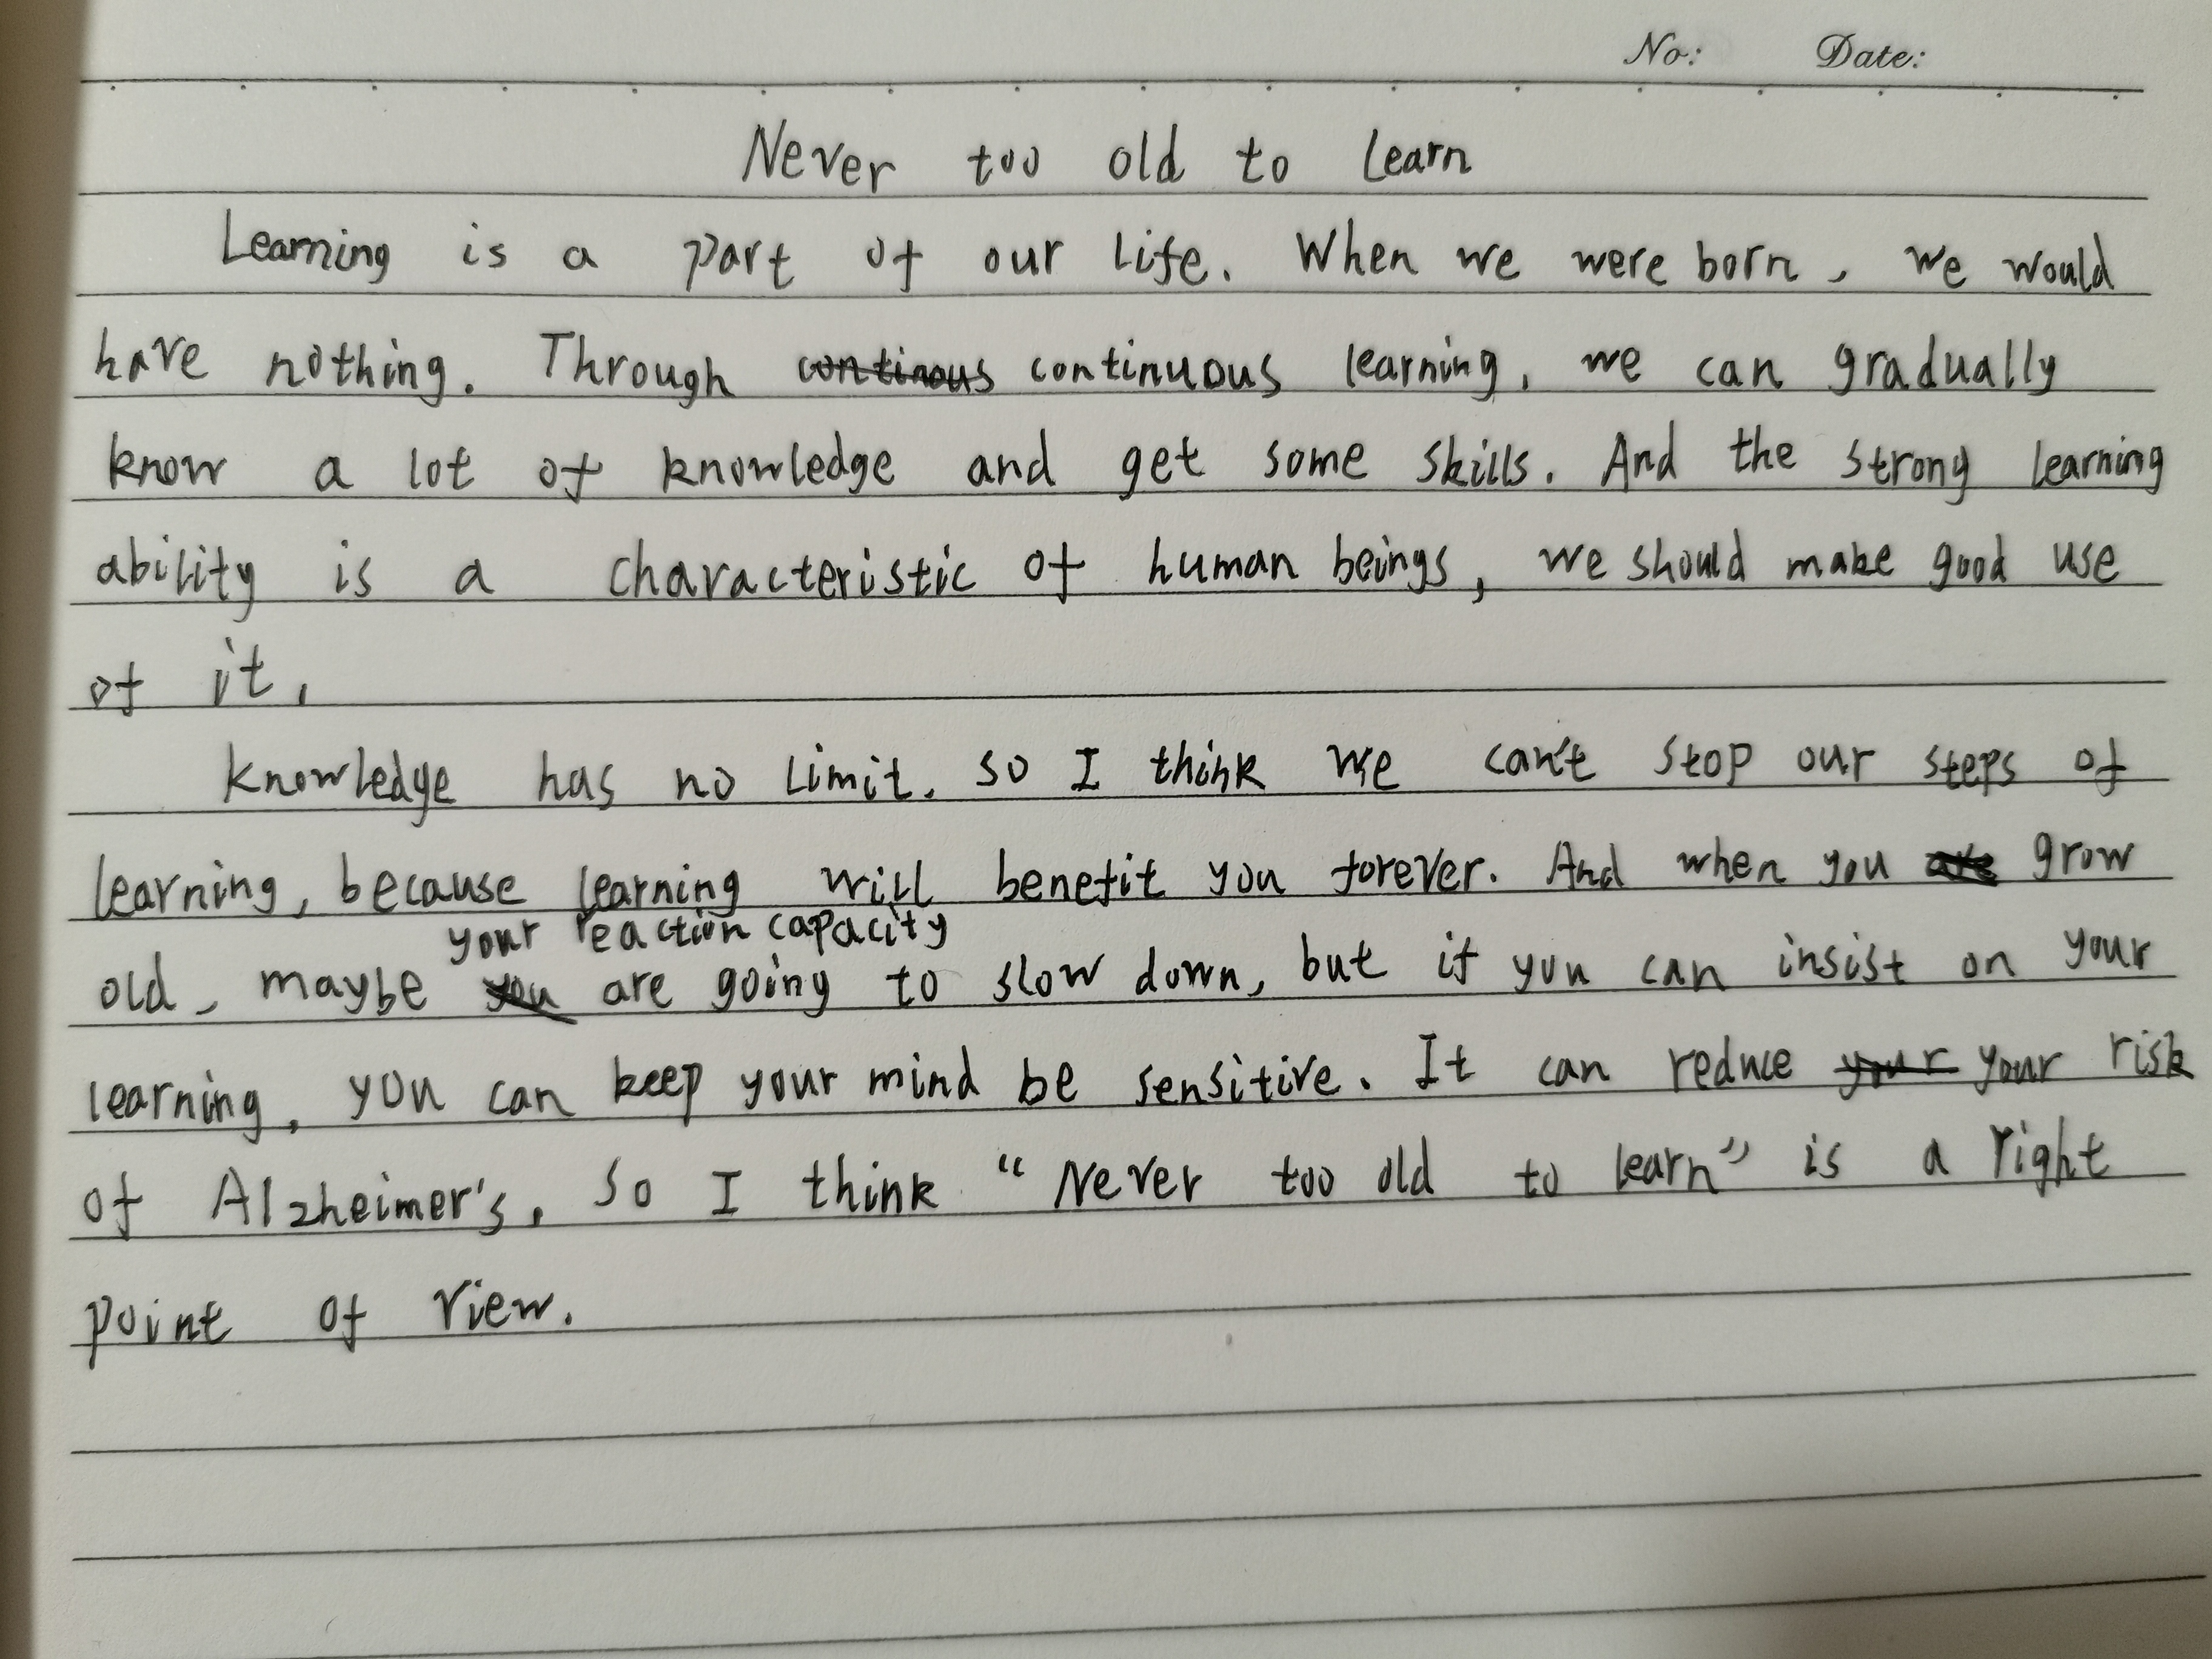 No: Date:
Never too old to learn
Learning is a part of our life. When we were born, we would
have nothing. Through continous continuous learning, we can gradually
know a lot of knowledge and get some skills. And the strong learning
ability is a characteristic of human beings, we should make good use
of it.
knowledge has no limit. so I think we can't stop our steps of
learning, because learning will benefit you forever. And when you are grow
your reaction capacity
old, maybe you are going to slow down, but if you can insist on your
learning, you can keep your mind be sensitive. It can reduce your your risk
of Alzheimer's. So I think "Never too old to learn" is a right
point of view.